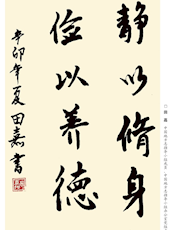 静以脩身
俭以养德
辛卯年夏田嘉书